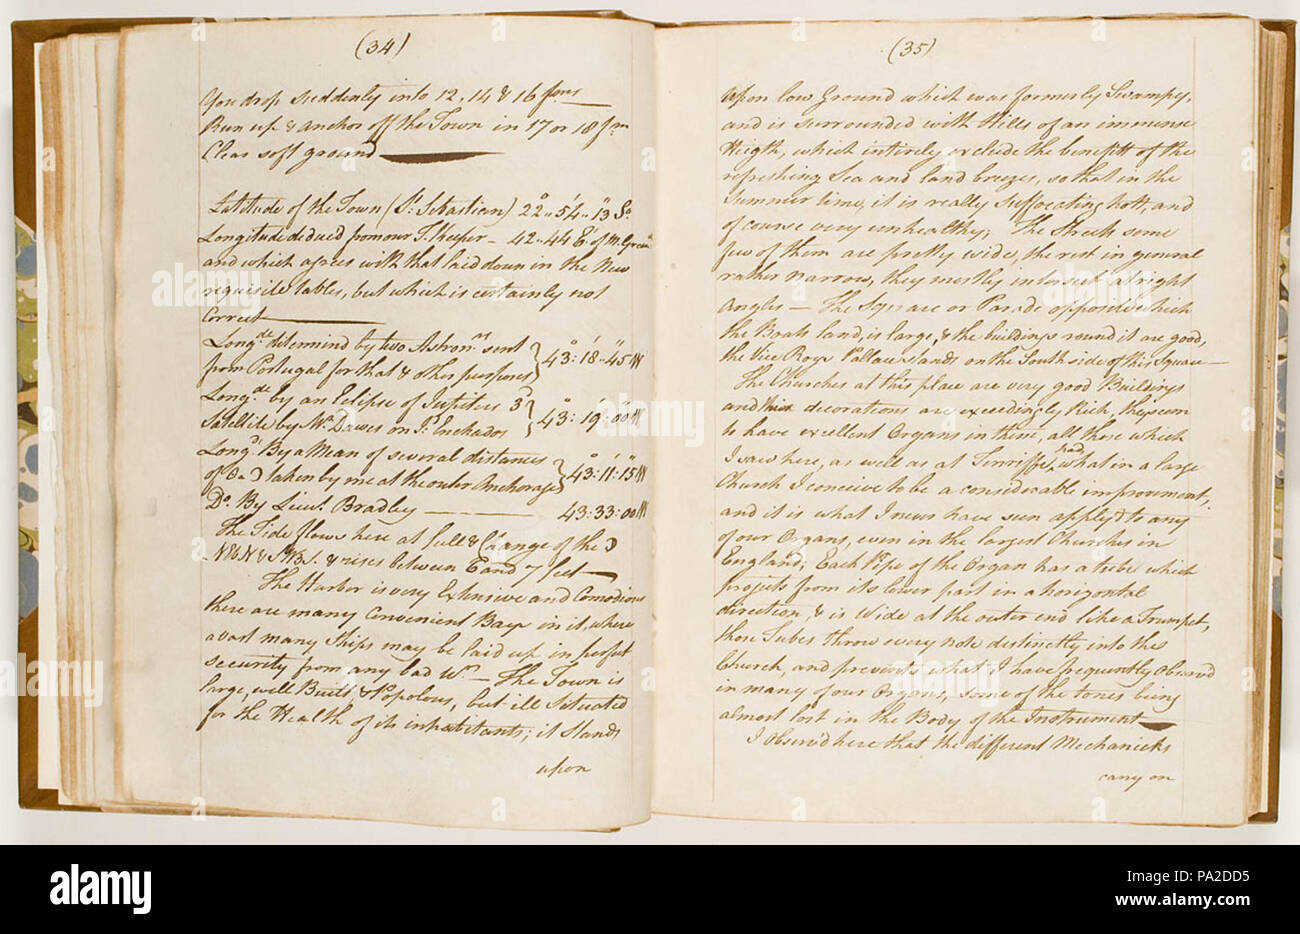 (34)
You drop suddenly into 12, 14 & 16 fms
Run up & anchor off the Town in 17 or 18 fm
Clear soft ground
Latitude of the Town (St. Sebastian) 22°..54'..13" So
Longitude deduced from our T. Keeper – 42..44 of
and which agrees with that laid down in the New
requisite tables, but which is certainly not
Correct
Longde. determined by two Astronrs. sent
from Portugal for that & other purposes } 43°:18'..45"W
Longde. by an Eclipse of Jupiters 3d
Satellite by Mr. Dawes on I. Enchados } 43°:19':00W
Longd. By a Mean of several distances
of taken by me at the outer Anchorage } 43°:11':15"W
Do. By Lieut. Bradley 43:33:00W
The Tide flows here at full & Change of the ☽
& rises between 6 and 7 feet
The Harbor is very Extensive and Comodious
there are many Convenient Bays in it, where
a vast many Ships may be laid up in perfect
security from any bad Wr. – The Town is
large, well Built & Populous, but ill Situated
for the Health of its inhabitants; it stands
upon
(35)
upon low Ground which was formerly Swampy,
and is surrounded with Hills of an immense
Heigth, which intirely exclude the benefitt of the
refreshing Sea and land breezes, so that in the
Summer time, it is really suffocating hott, and
of course very unhealthy; The Streets some
few of them are pretty wide, the rest in general
rather narrow, they mostly intersect at right
Angles – The Square or Parade opposite which
the Boats land, is large, & the buildings round it are good,
the Vice Roys Pallace stands on the South side of this Square –
The Churches at this place are very good Buildings
and their decorations are exceedingly Rich, they seem
to have excellent Organs in them, all those which
I saw here, as well as at Teneriffe, had what in a large
Church I conceive to be a considerable improvement,
and it is what I never have seen apply'd to any
of our Organs, even in the largest Churches in
England; Each Pipe of the Organ has a tube which
projects from its lower part in a horizontal
direction, & is Wide at the outer end like a Trumpet,
those Tubes throw every note distinctly into the
Church, and prevents what I have frequently Observ'd
in many of our Organs, some of the tones being
almost lost in the Body of the Instrument
I Observ'd here that the different Mechanicks
carry on
alamy
a
alamy
www.alamy.com
Image ID: PA2DD5